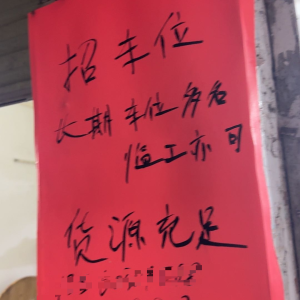 招车位
长期车位多名
临工亦可
货源充足